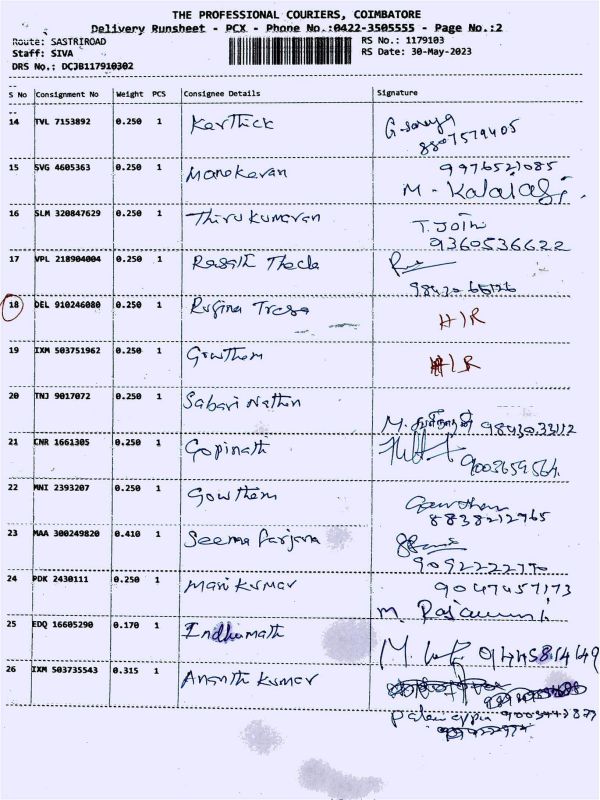 THE PROFESSIONAL COURIERS, COIMBATORE
Delivery Runsheet - PCX - Phone No.:0422-3505555 - Page No.:2
Route: SASTRIROAD RS No.: 1179103
Staff: SIVA RS Date: 30-May-2023
DRS No.: DCJB117910302
S No Consignment No Weight PCS Consignee Details Signature
14 TVL 7153892 0.250 1 Karthick
8807579405
15 SVG 4605363 0.250 1 Manokaran 9976521085
M-
16 SLM 320847629 0.250 1 Thirukumaran T. John
9360536622
17 VPL 218904004 0.250 1
18 DEL 910246080 0.250 1 Rufina Tresa H/R
19 IXM 503751962 0.250 1 Gowtham H/R
20 TNJ 9017072 0.250 1 Sabari Nathan
M. 9843033112
21 CNR 1661305 0.250 1 Gopinath
22 MNI 2393207 0.250 1 Gowtham Gowtham
8838212965
23 MAA 300249820 0.410 1 Seema Farjana
24 PDK 2430111 0.250 1 Mari Kumar 9047457173
M.
25 EDQ 16605290 0.170 1 Indhumathi
M.
26 IXM 503735543 0.315 1 Ananth Kumar